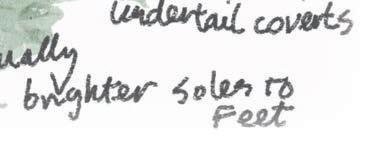 undertail coverts
ually
brighter soles to
Feet